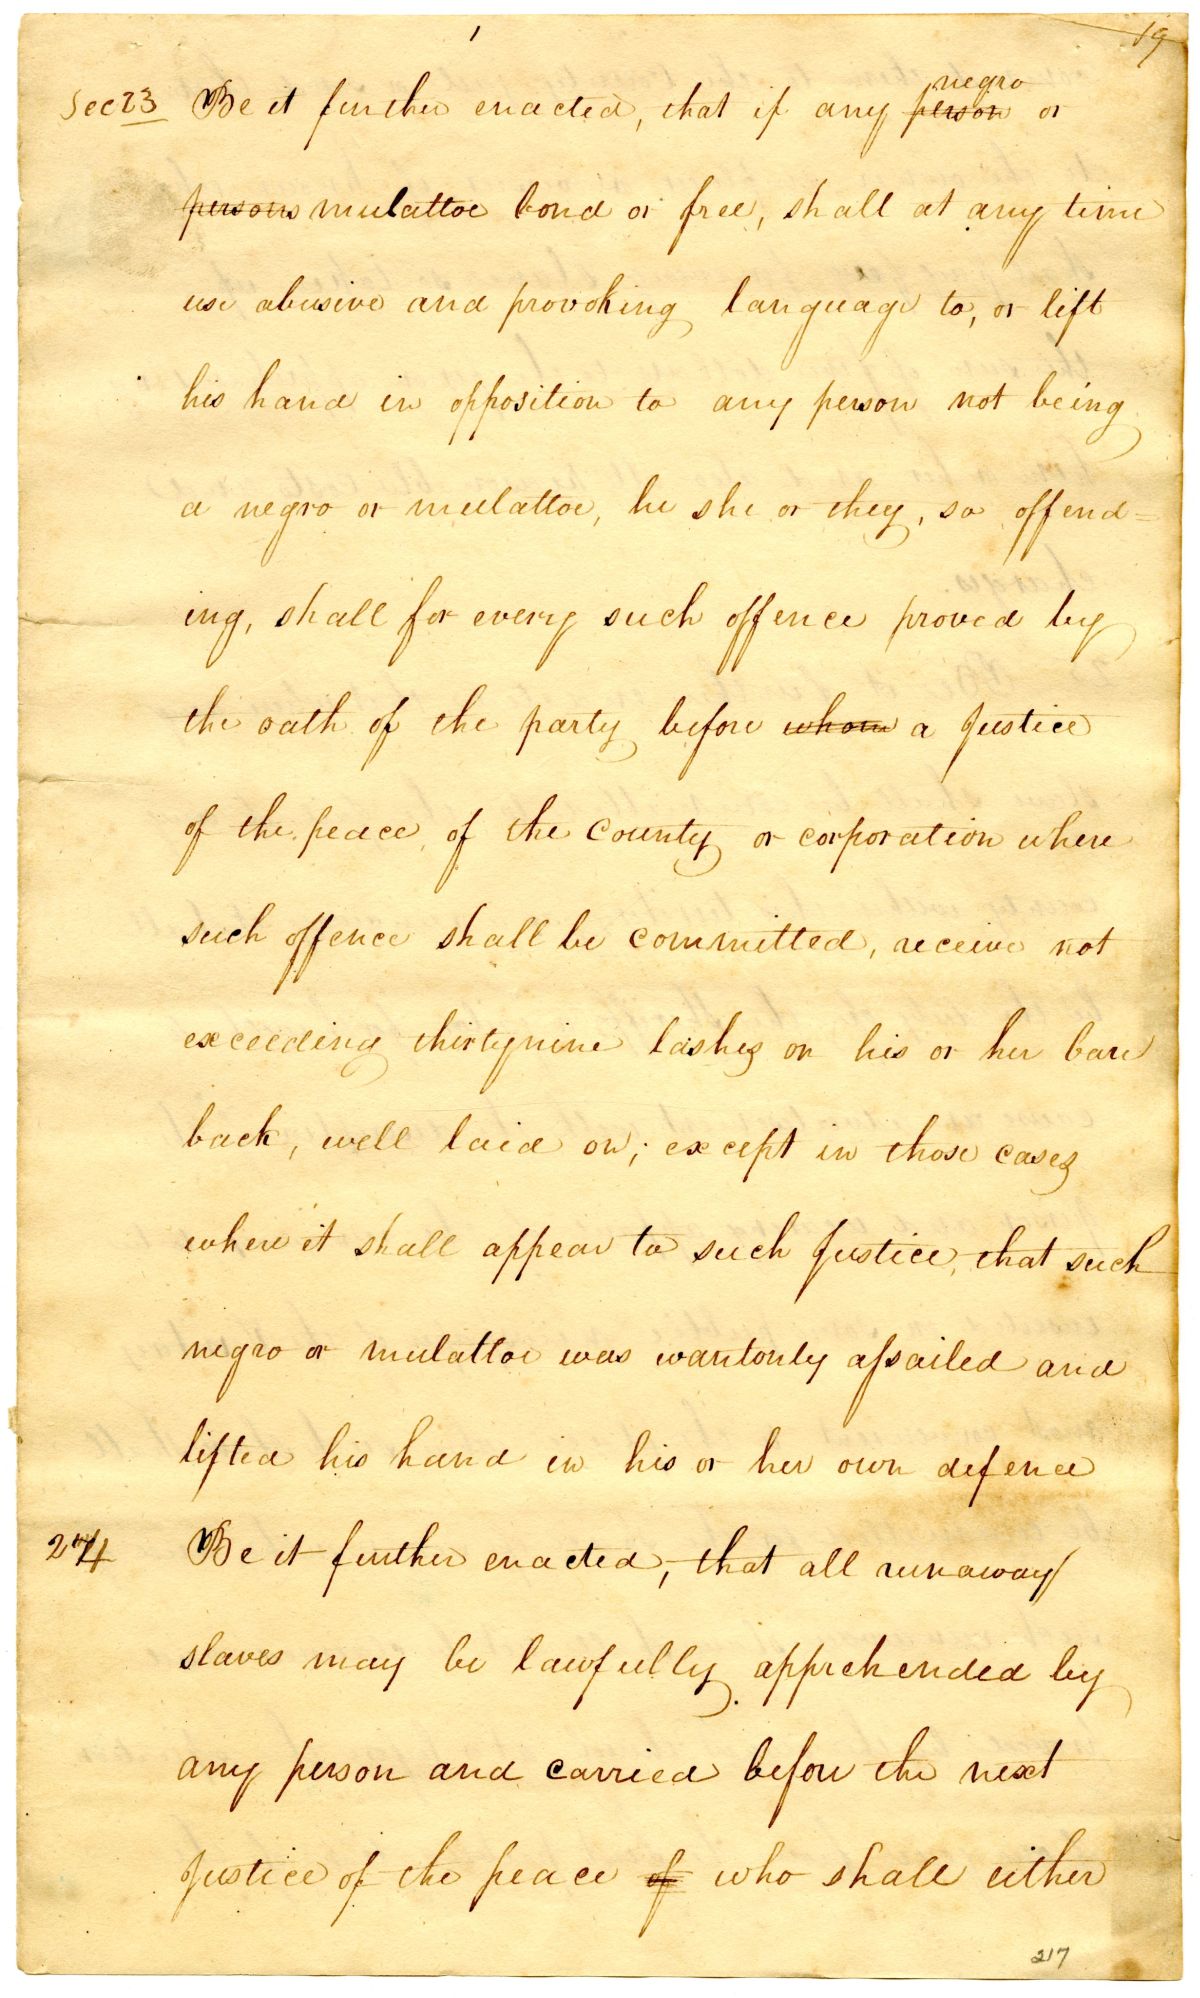 19
negro
Sec 23 Be it further enacted, that if any person or
persons mulattoe bond or free, shall at any time
use abusive and provoking language to, or lift
his hand in opposition to any person not being
a negro or mulattoe, he she or they, so offend=
ing, shall for every such offence proved by
the oath of the party before whom a Justice
of the peace of the County or corporation where
such offence shall be committed, receive not
exceeding thirtynine lashes on his or her bare
back, well laid on; except in those cases
where it shall appear to such Justice, that such
negro or mulattoe was wantonly assailed and
lifted his hand in his or her own defence
24 Be it further enacted, that all runaway
slaves may be lawfully apprehended by
any person and carried before the next
Justice of the peace of who shall either
217